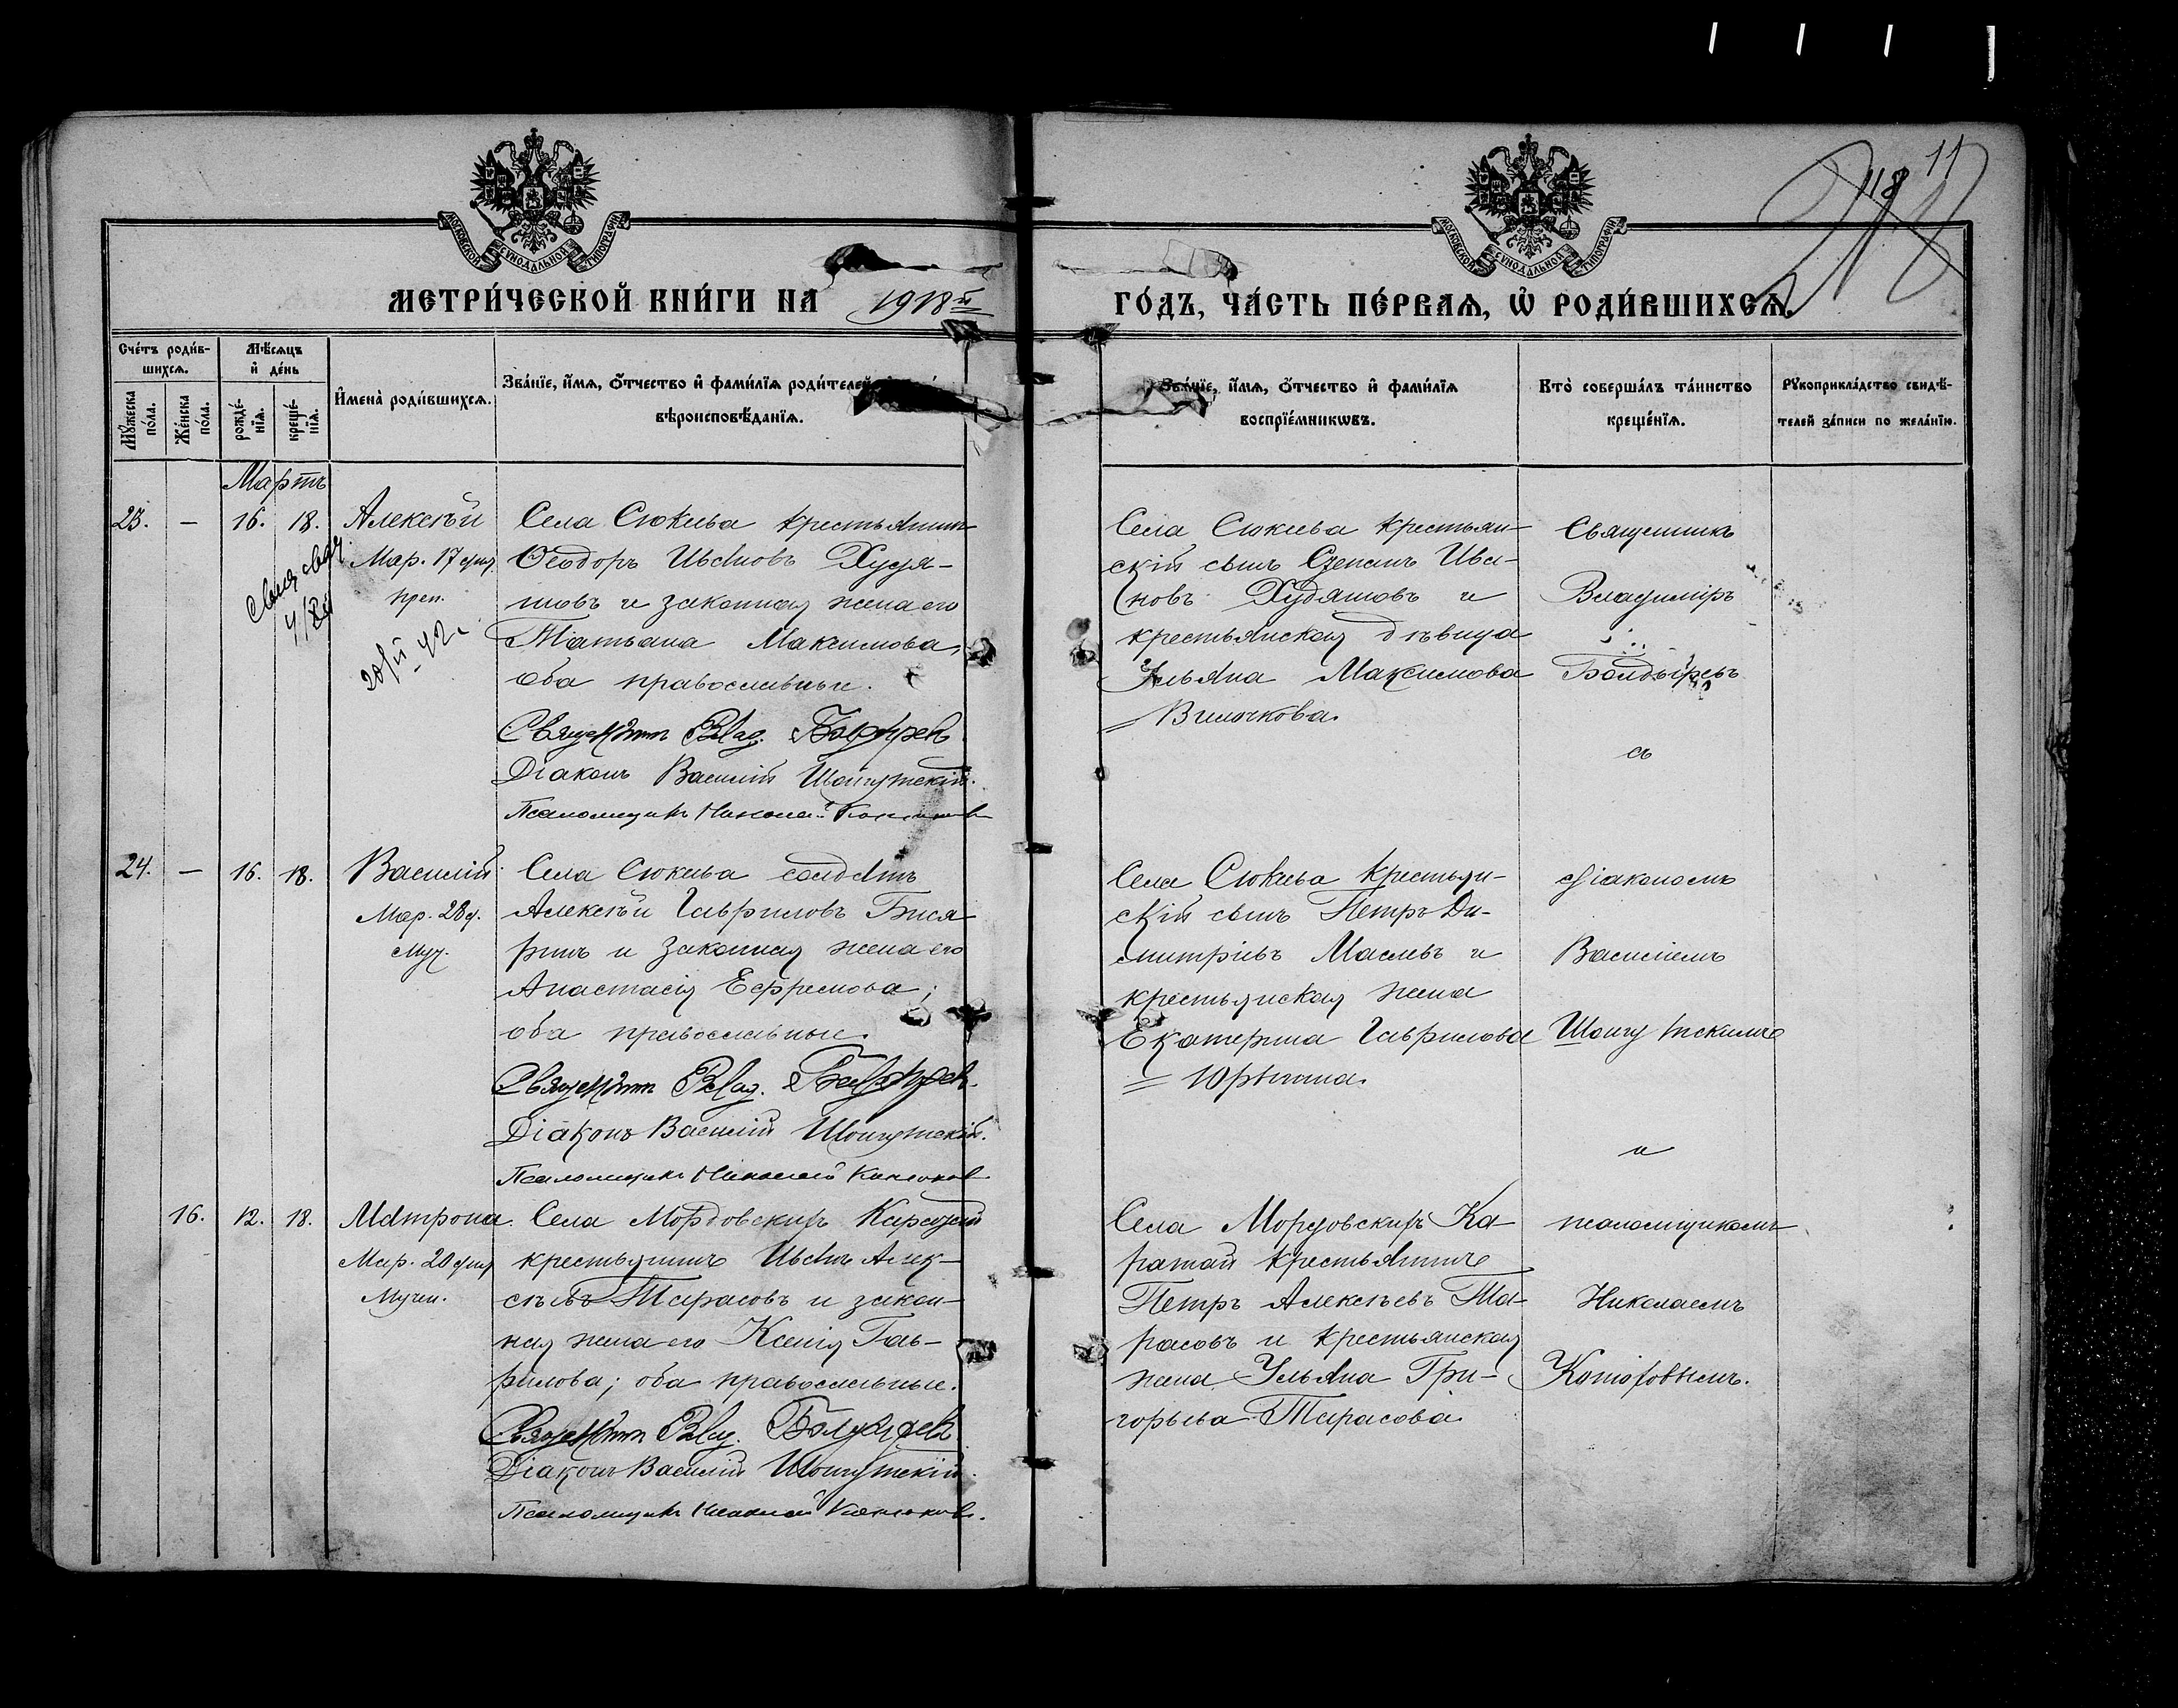 118 11
МОСКОВСКОЙ СѴНОДАЛЬНОЙ ТИПОГРАФІИ
МОСКОВСКОЙ СѴНОДАЛЬНОЙ ТИПОГРАФІИ
МЕТРИ́ЧЕСКОЙ КНИ́ГИ НА 1918й
ГО́ДЪ, ЧА́СТЬ ПЕ́РВАѦ, Ѽ РОДИ́ВШИХСѦ.
Сче́тъ роди́в-
шихсѧ.
Мѣ́сѧцъ
и҆ де́нь
Мꙋ́жеска
по́ла.
Же́нска
по́ла.
рожде́-
нїѧ.
креще́-
нїѧ.
И҆мена̀ роди́вшихсѧ.
Зва́нїе, и҆́мѧ, ѻ҆́тчество и҆ фами́лїѧ роди́телей
вѣроисповѣ́данїѧ.
Зва́нїе, и҆́мѧ, ѻ҆́тчество и҆ фами́лїѧ
воспрїе́мникѡвъ.
Кто̀ соверша́лъ та́инство
креще́нїѧ.
Рꙋкоприкла́дство свидѣ́-
телей за́писи по жела́нїю.
Мартъ
23. — 16. 18. Алексѣй
Мар. 17 дня
преп.
Села Сюкѣева крестьянинъ
Ѳеодоръ Ивановъ Худя-
шовъ и законная жена его
Татьана Максимова,
оба православные.
Священникъ Влад. Болдырев
Діаконъ Василій
Псаломщикъ Николай
Села Сюкѣева крестьян-
скій сынъ Степанъ Ива-
новъ Худяшовъ и
крестьянская дѣвица
Ульяна Максимова
Вилочкова.
Священникъ
Владиміръ
Болдыревъ
съ
24. — 16. 18. Василій
Мар. 28 д.
муч.
Села Сюкѣева солдатъ
Алексѣй Гавриловъ Бися-
ринъ и законная жена его
Анастасія Ефремова;
оба православные.
Священникъ Влад. Болдырев
Діаконъ Василій
Псаломщикъ Николай
Села Сюкѣева крестьян-
скій сынъ Петръ Ди-
митріевъ Маслевъ и
крестьянская жена
Екатерина Гаврилова
діакономъ
Василіемъ
и
16. 12. 18. Матрона
Мар. 20 дня
Мучен.
Села Мордовскихъ Каратай
крестьянинъ Иванъ Алек-
сѣевъ Тарасовъ и закон-
ная жена его Ксенія Гав-
рилова; оба православные.
Священникъ Влад. Болдырев
Діаконъ Василій
Псаломщикъ Николай
Села Мордовскихъ Ка-
ратай крестьянинъ
Петръ Алексѣевъ Та-
расовъ и крестьянская
жена Ульяна Гри-
горьева Тарасова.
псаломщикомъ
Николаемъ